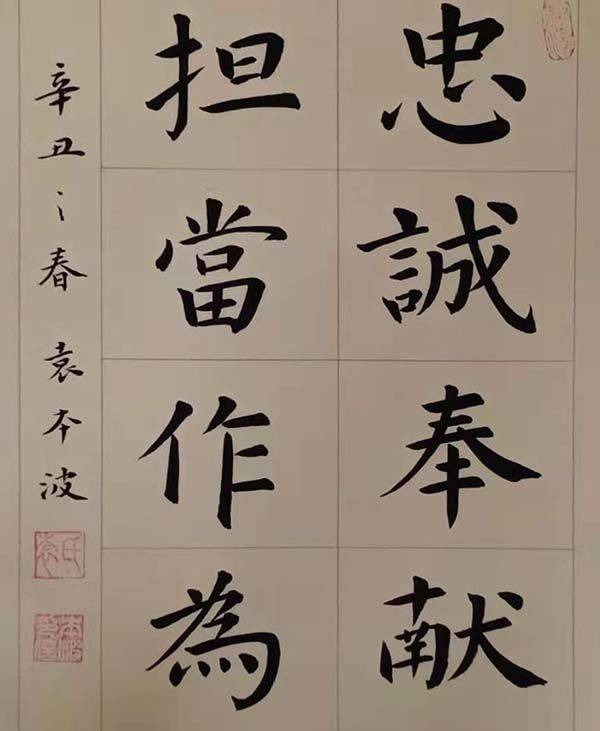 忠誠奉献
担當作為
辛丑之春 袁本波